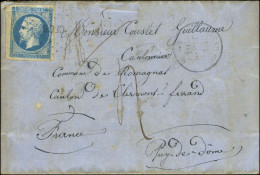 Monsieur Couslet Guillaume
Cantonnier
Commune de Romagnat
Canton de Clermont ferrand
France
Puy-de-dôme